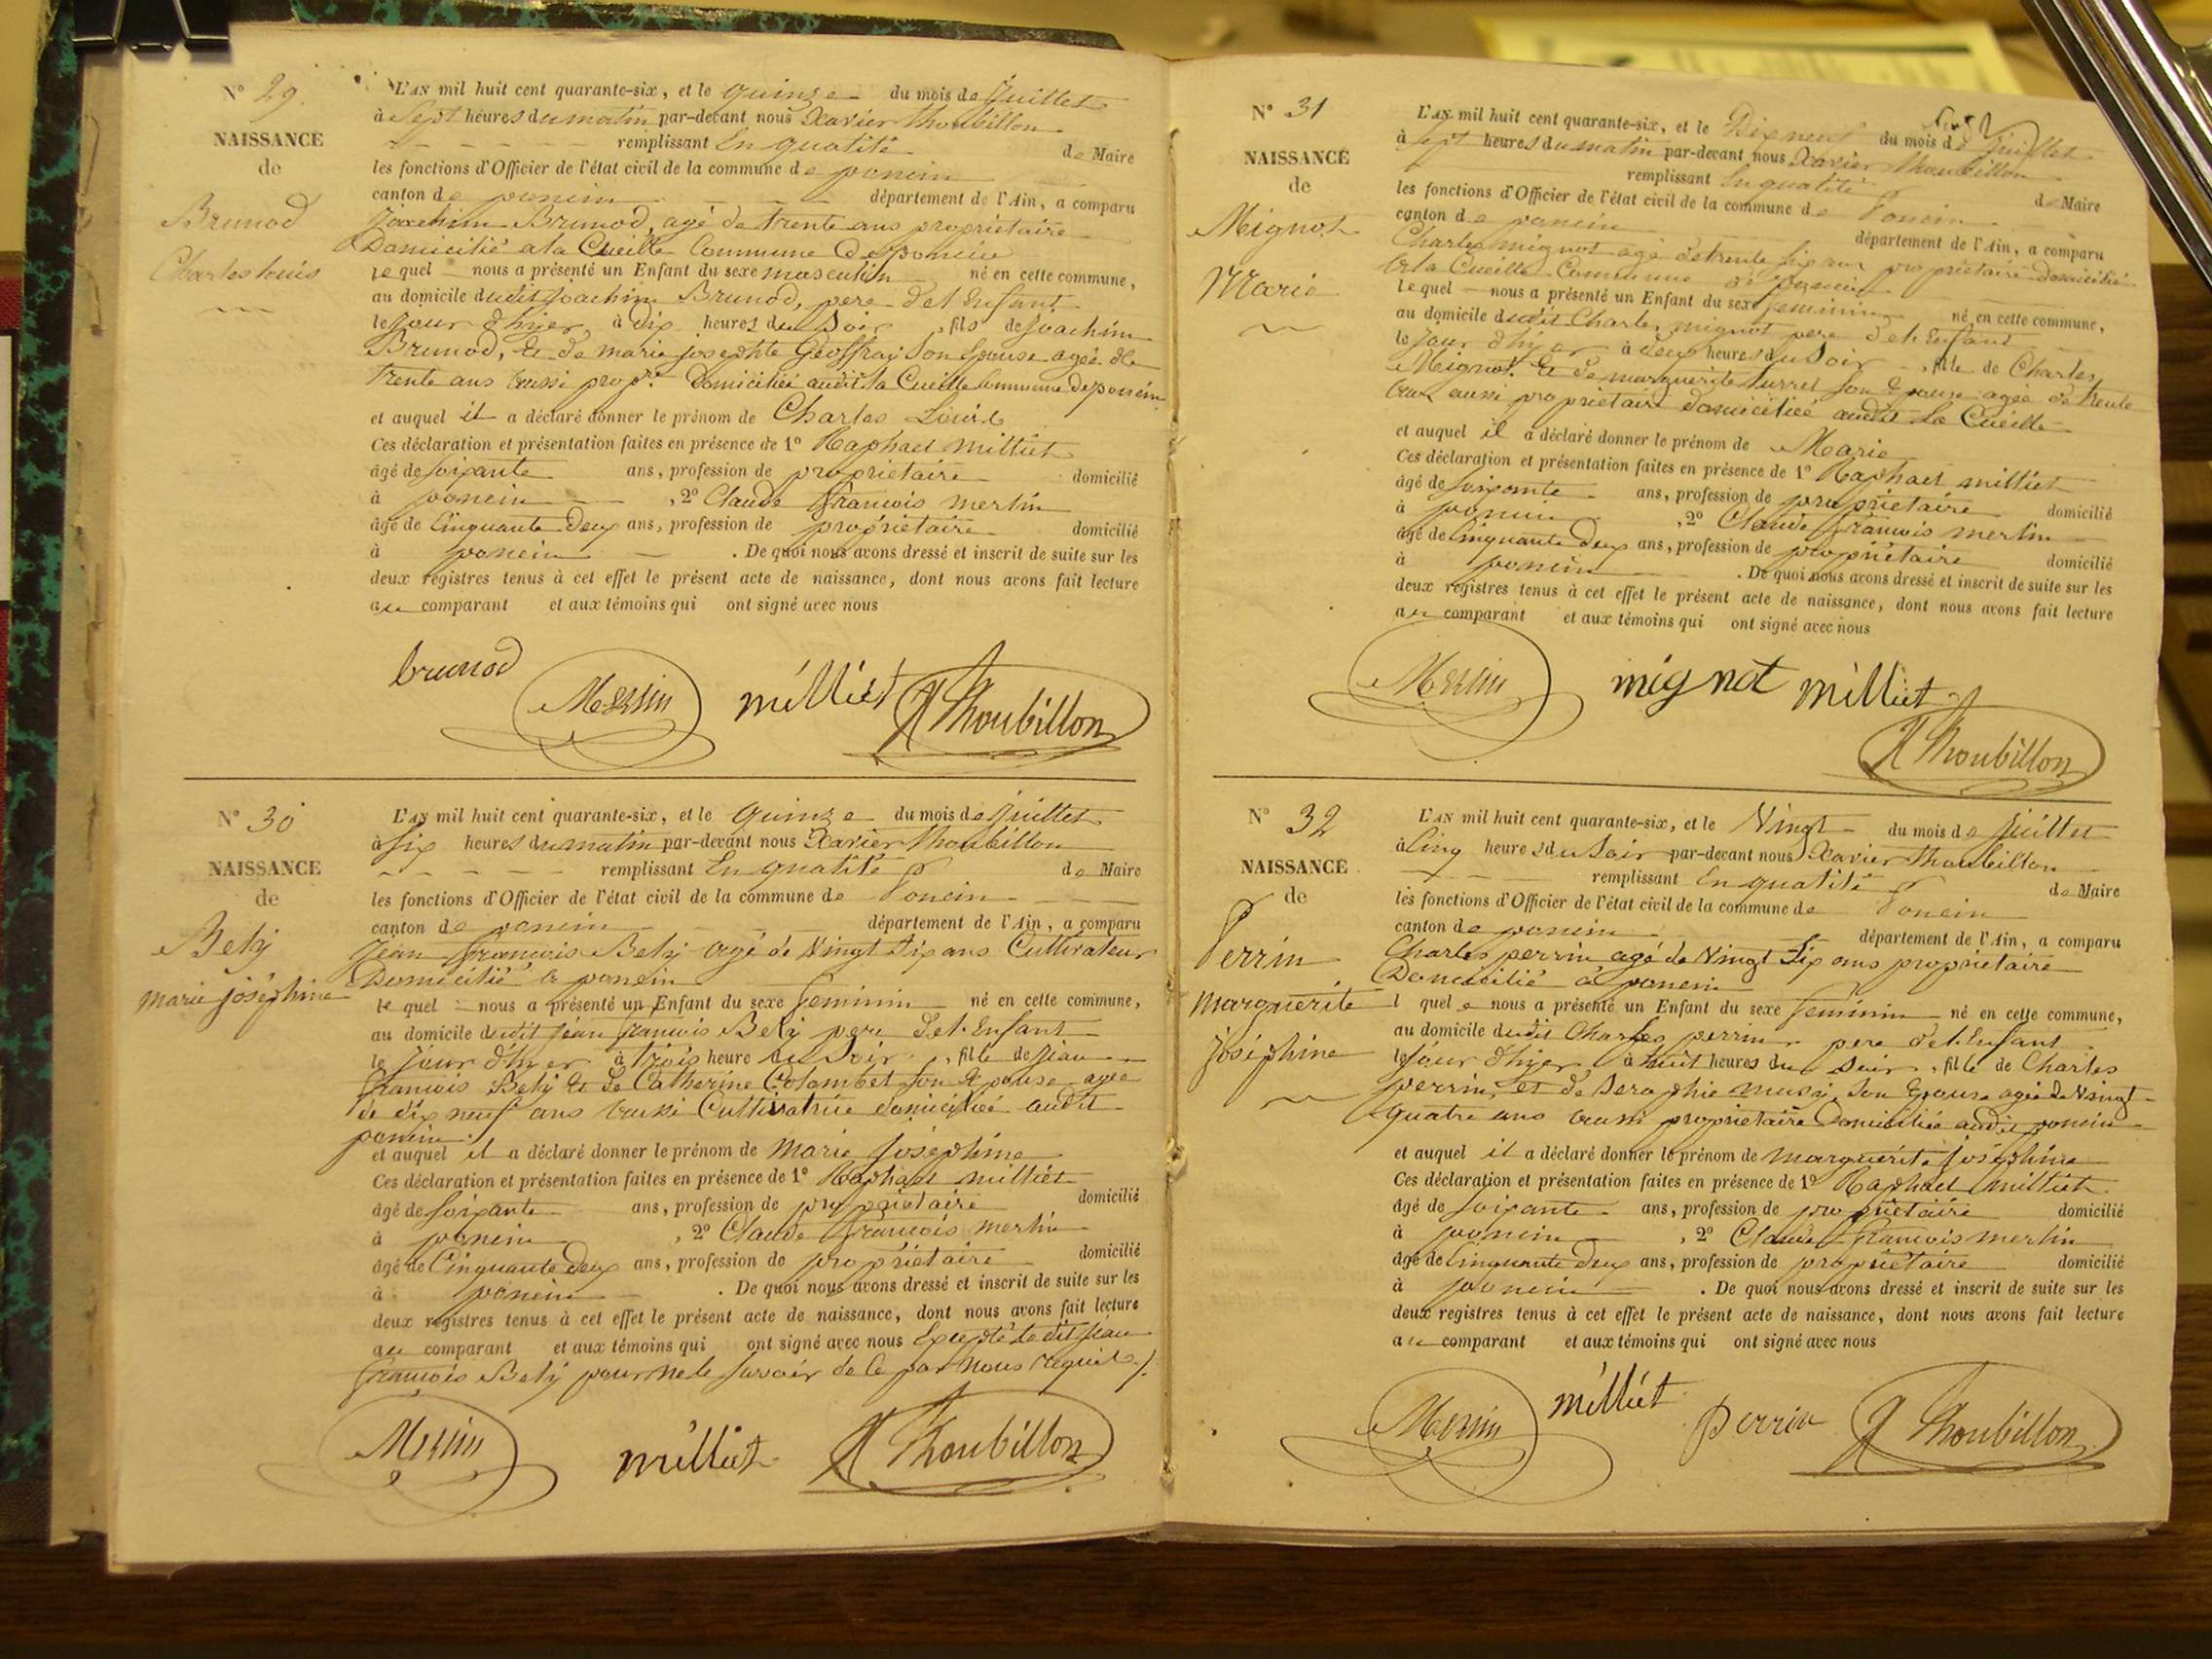 N° 29.
NAISSANCE
de
Brunod
Charles louis
L'AN mil huit cent quarante-six, et le quinze du mois de Juillet
à Sept heures du matin par-devant nous Xavier Thoubillon
remplissant En qualité de Maire
les fonctions d'Officier de l'état civil de la commune de poncin
canton de poncin département de l'Ain, a comparu
Joachim Brunod, agé de trente ans propriétaire
Domicilié a la Cueille Commune de poncin
lequel nous a présenté un Enfant du sexe masculin né en cette commune,
au domicile dudit Joachim Brunod, pere de l'Enfant
le Jour d'hyer, à dix heures du Soir, fils de Joachim
Brunod, et de marie josephte Geoffray Son Epouse agée de
trente ans aussi prop.re Domiciliée audit la Cueille Commune de poncin
et auquel il a déclaré donner le prénom de Charles Louis
Ces déclaration et présentation faites en présence de 1° Raphael milliet
âgé de Soixante ans, profession de propriétaire domicilié
à poncin , 2° Claude françois merlin
âgé de Cinquante Deux ans, profession de propriétaire domicilié
à poncin . De quoi nous avons dressé et inscrit de suite sur les
deux registres tenus à cet effet le présent acte de naissance, dont nous avons fait lecture
au comparant et aux témoins qui ont signé avec nous
brunod Merlin milliet X Thoubillon
N° 30
NAISSANCE
de
Bely
marie joséphine
L'AN mil huit cent quarante-six, et le quinze du mois de Juillet
à Six heures du matin par-devant nous Xavier Thoubillon
remplissant En qualité de Maire
les fonctions d'Officier de l'état civil de la commune de Poncin
canton de poncin département de l'Ain, a comparu
Jean françois Bely agé de Vingt Six ans Cultivateur
Domicilié a poncin
lequel nous a présenté un Enfant du sexe feminin né en cette commune,
au domicile dudit Jean françois Bely pere de l'Enfant
le Jour d'hyer à trois heure du Soir, fille de Jean
françois Bely et de Catherine Colombet son Epouse agée
de dix neuf ans aussi Cultivatrice domiciliée audit
poncin
et auquel il a déclaré donner le prénom de marie Joséphine
Ces déclaration et présentation faites en présence de 1° Raphael milliet
âgé de Soixante ans, profession de propriétaire domicilié
à poncin , 2° Claude françois merlin
âgé de Cinquante deux ans, profession de propriétaire domicilié
à poncin . De quoi nous avons dressé et inscrit de suite sur les
deux registres tenus à cet effet le présent acte de naissance, dont nous avons fait lecture
au comparant et aux témoins qui ont signé avec nous Excepté le dit Jean
françois Bely pour ne le Savoir de Ce par Nous requis ./.
Merlin milliet X Thoubillon
N° 31
NAISSANCE
de
Mignot
Marie
L'AN mil huit cent quarante-six, et le Dix neuf du mois de Juillet
à Sept heures du matin par-devant nous Xavier Thoubillon
remplissant En qualité de Maire
les fonctions d'Officier de l'état civil de la commune de Poncin
canton de poncin département de l'Ain, a comparu
Charles mignot agé de trente Six ans propriétaire domicilié
a la Cueille Commune de poncin
lequel nous a présenté un Enfant du sexe feminin né en cette commune,
au domicile dudit Charles mignot pere de l'Enfant
le Jour d'hyer à deux heures du Soir, fille de Charles
Mignot. Et de marguerite turrel Son Epouse agée de trente
ans aussi propriétaire domiciliée audit La Cueille
et auquel il a déclaré donner le prénom de Marie
Ces déclaration et présentation faites en présence de 1° Raphael milliet
âgé de Soixante ans, profession de propriétaire domicilié
à poncin , 2° Claude françois merlin
âgé de Cinquante deux ans, profession de propriétaire domicilié
à poncin . De quoi nous avons dressé et inscrit de suite sur les
deux registres tenus à cet effet le présent acte de naissance, dont nous avons fait lecture
au comparant et aux témoins qui ont signé avec nous
Merlin mignot milliet
X Thoubillon
N° 32
NAISSANCE
de
Perrin
marguerite
joséphine
L'AN mil huit cent quarante-six, et le Vingt du mois de Juillet
à Cinq heures du Soir par-devant nous Xavier Thoubillon
remplissant En qualité de Maire
les fonctions d'Officier de l'état civil de la commune de Poncin
canton de poncin département de l'Ain, a comparu
Charles perrin agé de Vingt Six ans propriétaire
Domicilié à poncin
lequel nous a présenté un Enfant du sexe feminin né en cette commune,
au domicile dudit Charles perrin pere de l'Enfant
le Jour d'hyer, à huit heures du Soir, fille de Charles
perrin, et de Seraphie musy, Son Epouse agée de Vingt
quatre ans aussi propriétaire Domiciliée audit poncin
et auquel il a déclaré donner le prénom de marguerite joséphine
Ces déclaration et présentation faites en présence de 1° Raphael milliet
âgé de Soixante ans, profession de propriétaire domicilié
à poncin , 2° Claude françois merlin
âgé de Cinquante Deux ans, profession de propriétaire domicilié
à poncin . De quoi nous avons dressé et inscrit de suite sur les
deux registres tenus à cet effet le présent acte de naissance, dont nous avons fait lecture
au comparant et aux témoins qui ont signé avec nous
Merlin milliet perrin X Thoubillon